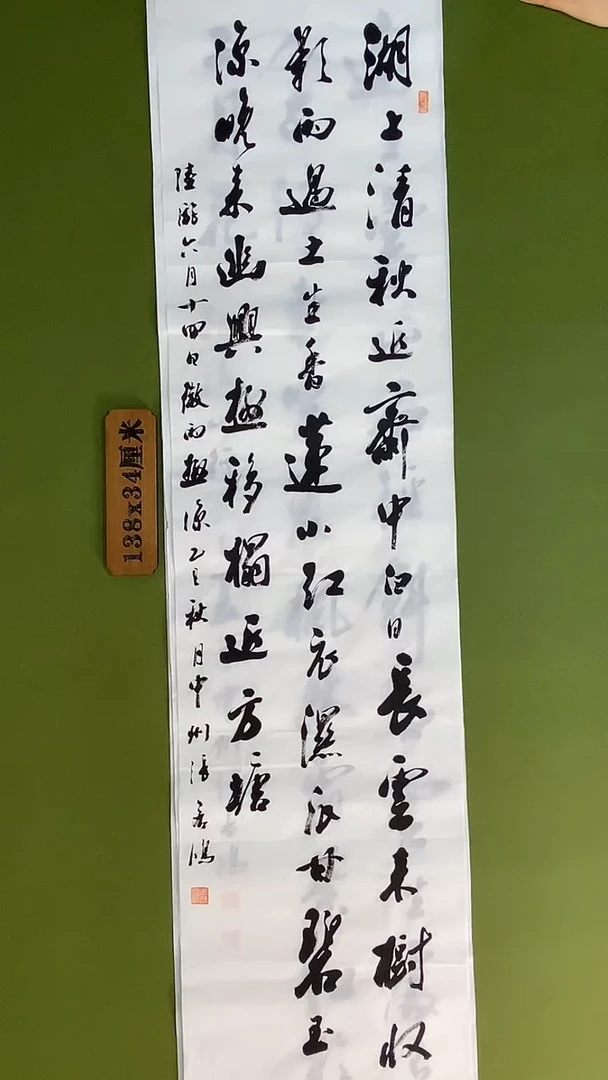 湖上清秋近齋中白日長雲来樹收
影雨過土生香蓮小红衣濕瓜甘碧玉
涼晚来幽興極移榻近方塘
陸游六月十四日微雨極涼乙巳秋月中州張鴻
138x34厘米